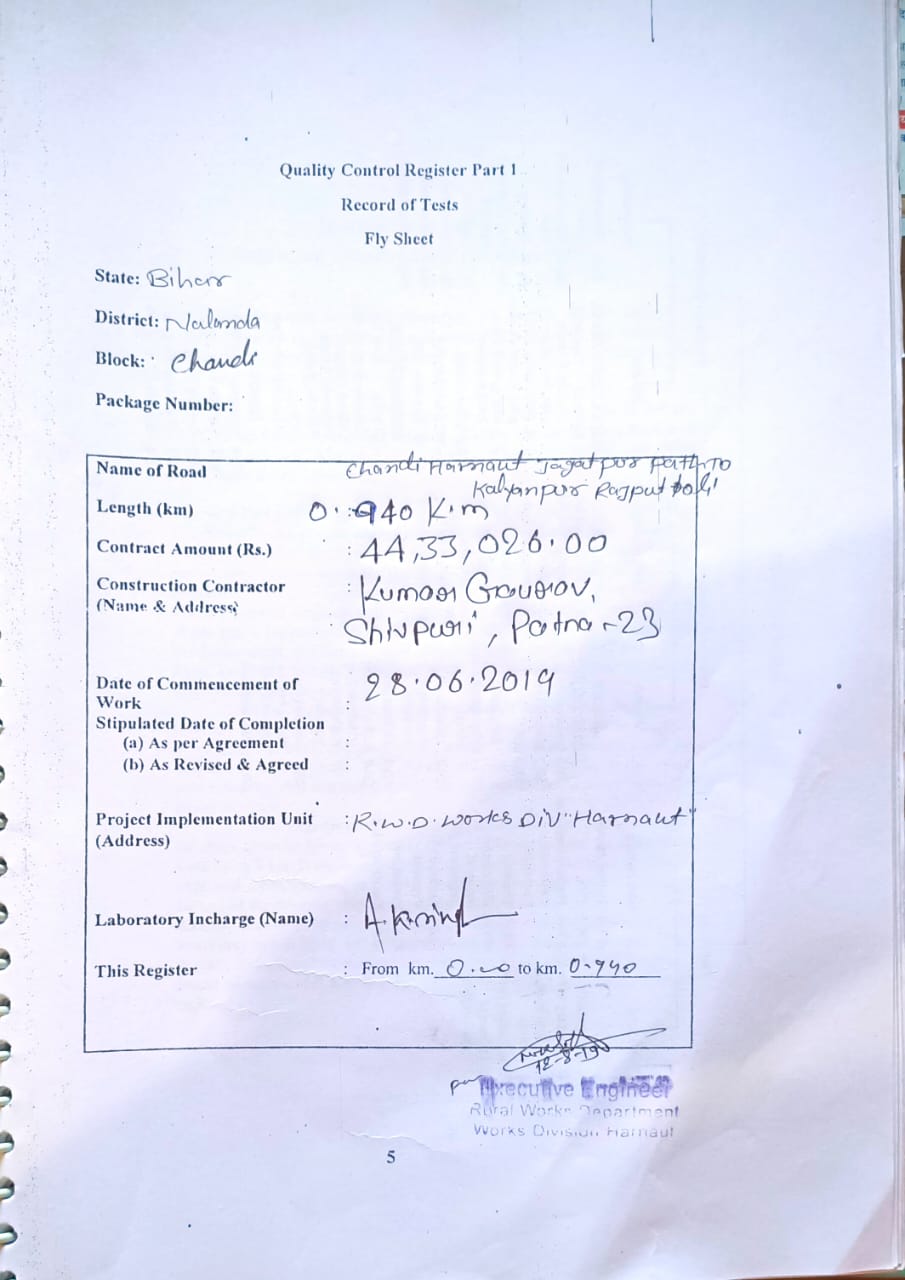 Quality Control Register Part 1
Record of Tests
Fly Sheet
State: Bihar
District: Nalanda
Block: Chandi
Package Number:
Name of Road Chandi Harnaut Jagatpur Path To
Kalyanpur Rajput toli
Length (km) : 0.940 K.m
Contract Amount (Rs.) : 44,33,026.00
Construction Contractor : Kumar Gaurav,
(Name & Address) Shivpuri, Patna-23
Date of Commencement of : 28.06.2019
Work
Stipulated Date of Completion
(a) As per Agreement :
(b) As Revised & Agreed :
Project Implementation Unit : R.W.D. Works Div "Harnaut"
(Address)
Laboratory Incharge (Name) :
This Register : From km. 0.00 to km. 0.940
12-8-19
Executive Engineer
Rural Works Department
Works Division Harnaut
5